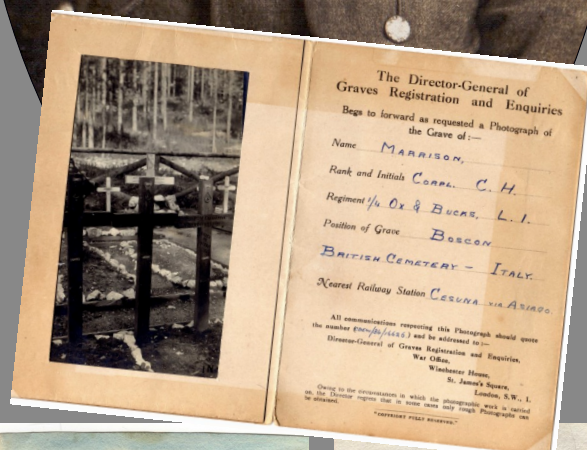 The Director-General of
Graves Registration and Enquiries
Begs to forward as requested a Photograph of
the Grave of :—
Name MARRISON,
Rank and Initials CORPL. C. H.
Regiment 1/4 OX & BUCKS, L. I.
Position of Grave BOSCON
BRITISH CEMETERY - ITALY.
Nearest Railway Station CESUNA VIA ASIAGO
All communications respecting this Photograph should quote
the number and be addressed to :—
Director-General of Graves Registration and Enquiries,
War Office,
Winchester House,
St. James's Square,
London, S.W., 1.
Owing to the circumstances in which the photographic work is carried
on, the Director regrets that in some cases only rough Photographs can
be obtained.
"COPYRIGHT FULLY RESERVED."